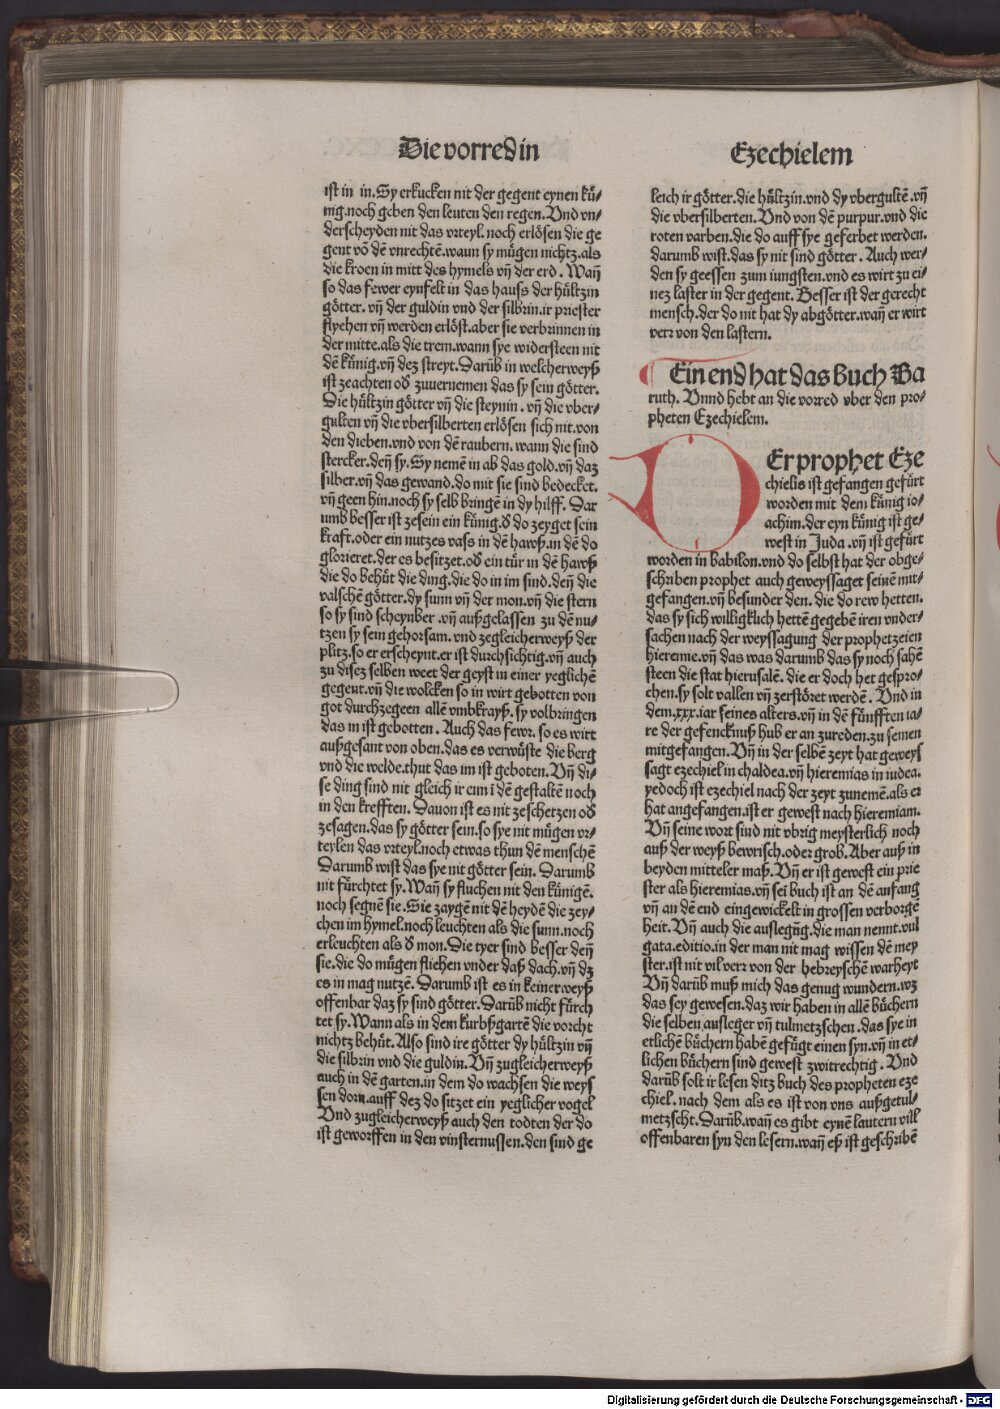 Die vorred in
Ezechielem
ist in in. Sy erkucken nit der gegent eynen kü⸗
nig. noch geben den leuten den regen. Vnd vn⸗
derscheyden nit das vrteyl. noch erlösen die ge
gent vō dē vnrechtē. waun sy mügen nichtz. als
die kroen in mitt des hymels vn̄ der erd. Wan̄
so das fewer eynfelt in das hauss der hültzin
götter. vn̄ der guldin vnd der silbrin. ir priester
flyehen vn̄ werden erlöst. aber sie verbrinnen in
der mitte. als die trem. wann sye widersteen nit
dē künig. vn̄ dez streyt. Darūb in welcherweyß
ist zeachten od̄ zuuernemen das sy sein götter.
Die hültzin götter vn̄ die steynin. vn̄ die vber⸗
gulten vn̄ die vbersilberten erlösen sich nit. von
den dieben. vnd von dē raubern. wann die sind
stercker. den̄ sy. Sy nemē in ab das gold. vn̄ daz
silber. vn̄ das gewand. do mit sie sind bedecket.
vn̄ geen hin. noch sy selb bringē in dy hilff. Dar
umb besser ist zesein ein künig. d̄ do zeyget sein
kraft. oder ein nutzes vass in dē hawß. in dē do
glorieret. der es besitzet. od̄ ein tür in dē hawß
die do behüt die ding. die do in im sind. den̄ die
valschē götter. dy sunn vn̄ der mon. vn̄ die stern
so sy sind scheynber. vn̄ außgelassen zu dē nu⸗
tzen sy sein gehorsam. vnd zegleicherweyß der
plitz. so er erscheynt. er ist durchsichtig. vn̄ auch
zu disez selben weet der geyst in einer yeglichē
gegent. vn̄ die wolcken so in wirt gebotten von
got durchzegeen allē vmbkrayß. sy volbringen
das in ist gebotten. Auch das fewr. so es wirt
außgesant von oben. das es verwüste die berg
vnd die welde. thut das im ist geboten. Vn̄ di⸗
se ding sind nit gleich ir einn ī dē gestaltē noch
in den krefften. Dauon ist es nit zeschetzen od̄
zesagen. das sy götter sein. so sye nit mügen vr⸗
teylen das vrteyl. noch etwas thun dē menschē
Darumb wist das sye nit götter sein. Darumb
nit fürchtet sy. Wan̄ sy fluchen nit den künigē.
noch segnē sie. Sie zaygē nit dē heydē die zey⸗
chen im hymel. noch leuchten als die sunn. noch
erleuchten als d̄ mon. Die tyer sind besser den̄
sie. die do mügen fliehen vnder daß dach. vn̄ dz
es in mag nutzē. Darumb ist es in keinerweyß
offenbar daz sy sind götter. Darūb nicht fürch
tet sy. Wann als in dem kurbßgartē die vorcht
nichtz behüt. Also sind ire götter dy hültzin vn̄
die silbrin vnd die guldin. Vn̄ zugleicherweyß
auch in dē garten. in dem do wachsen die weys
sen dorn. auff dez do sitzet ein yeglicher vogel
Vnd zugleicherweyß auch den todten der do
ist geworffen in den vinsternussen. den sind ge
leich ir götter. die hültzin. vnd dy vbergultē. vn̄
die vbersilberten. Vnd von dē purpur. vnd die
roten varben. die do auff sye geferbet werden.
darumb wist. das sy nit sind götter. Auch wer⸗
den sy geessen zum iungsten. vnd es wirt zu ei⸗
nez laster in der gegent. Besser ist der gerecht
mensch. der do nit hat dy abgötter. wan̄ er wirt
verr von den lastern.
Ein end hat das Buch Ba
ruth. Vnnd hebt an die vorred vber den pro⸗
pheten Ezechielem.
DEr prophet Eze
chielis ist gefangen gefürt
worden mit dem künig io⸗
achim. der eyn künig ist ge⸗
west in Juda. vn̄ ist gefürt
worden in babilon. vnd do selbst hat der obge⸗
schriben prophet auch geweyssaget seinē mit⸗
gefangen. vn̄ besunder den. die do rew hetten.
das sy sich willigklich hettē gegebē iren vnder⸗
sachen nach der weyssagung der prophetzeien
hieremie. vn̄ das was darumb das sy noch sahē
steen die stat hierusalē. die er doch het gespro⸗
chen. sy solt vallen vn̄ zerstöret werdē. Vnd in
dem. xxx. iar seines alters. vn̄ in dē fünfften ia⸗
re der gefencknuß hub er an zureden. zu seinen
mitgefangen. Vn̄ in der selbē zeyt hat geweys
sagt ezechiel in chaldea. vn̄ hieremias in iudea.
yedoch ist ezechiel nach der zeyt zunemē. als er
hat angefangen. ist er gewest nach hieremiam.
Vn̄ seine wort sind nit vbrig meysterlich noch
auß der weyß bewrisch. oder grob. Aber auß in
beyden mitteler maß. Vn̄ er ist gewest ein prie
ster als hieremias. vn̄ sei buch ist an dē anfang
vn̄ an dē end eingewickelt in grossen verborgē
heit. Vn̄ auch die auslegūg. die man nennt. vul
gata. editio. in der man nit mag wissen dē mey
ster. ist nit vil verr von der hebreyschē warheyt
Vn̄ darüb muß mich das genug wundern. wz
das sey gewesen. daz wir haben in allē büchern
die selben ausleger vn̄ tulmetzschen. das sye in
etlichē büchern habē gefügt einen syn. vn̄ in et⸗
lichen büchern sind gewest zwitrechtig. Vnd
darüb solt ir lesen ditz buch des propheten eze
chiel. nach dem als es ist von vns außgetul⸗
metzscht. Darüb. wan̄ es gibt eynē lautern vill
offenbaren syn den lesern. wan̄ eß ist geschribē
Digitalisierung gefördert durch die Deutsche Forschungsgemeinschaft - DFG